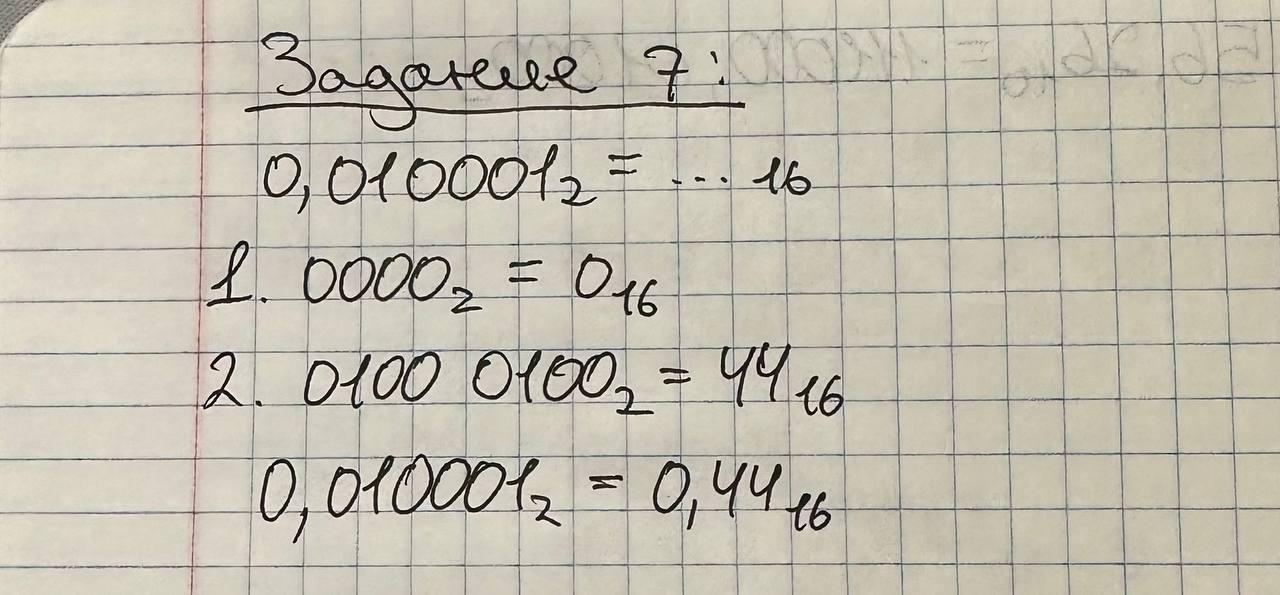 Задание 7:
0,010001₂ = ... ₁₆
1. 0000₂ = 0₁₆
2. 0100 0100₂ = 44₁₆
0,010001₂ = 0,44₁₆